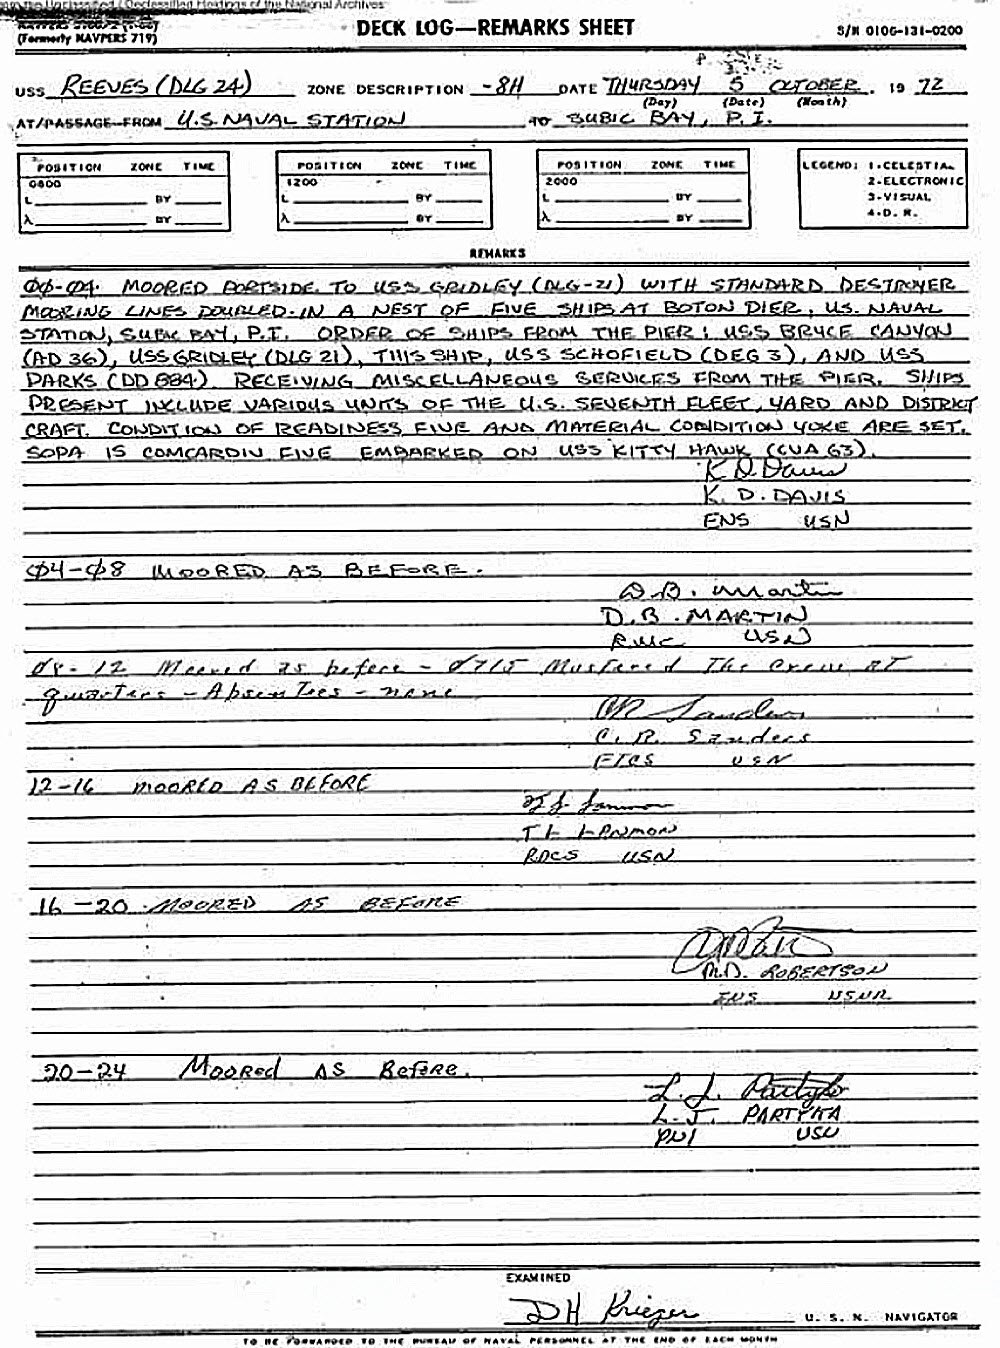 the Unclassified / Declassified Holdings of the National Archives
(Formerly NAVPERS 719)
DECK LOG—REMARKS SHEET
S/N 0106-131-0200
USS REEVES (DLG 24) ZONE DESCRIPTION -8H DATE THURSDAY 5 OCTOBER, 19 72
(Day) (Date) (Month)
AT/PASSAGE FROM U.S. NAVAL STATION TO SUBIC BAY, P.I.
POSITION ZONE TIME
0800
L BY
λ BY
POSITION ZONE TIME
1200
L BY
λ BY
POSITION ZONE TIME
2000
L BY
λ BY
LEGEND: 1-CELESTIAL
2-ELECTRONIC
3-VISUAL
4-D. R.
REMARKS
00-04. MOORED PORTSIDE TO USS GRIDLEY (DLG-21) WITH STANDARD DESTROYER
MOORING LINES DOUBLED IN A NEST OF FIVE SHIPS AT BOTON PIER, U.S. NAVAL
STATION, SUBIC BAY, P.I. ORDER OF SHIPS FROM THE PIER: USS BRYCE CANYON
(AD 36), USS GRIDLEY (DLG 21), THIS SHIP, USS SCHOFIELD (DEG 3), AND USS
PARKS (DD 884). RECEIVING MISCELLANEOUS SERVICES FROM THE PIER. SHIPS
PRESENT INCLUDE VARIOUS UNITS OF THE U.S. SEVENTH FLEET, YARD AND DISTRICT
CRAFT. CONDITION OF READINESS FIVE AND MATERIAL CONDITION YOKE ARE SET.
SOPA IS COMCARDIV FIVE EMBARKED ON USS KITTY HAWK (CVA 63).
K D Davis
K. D. DAVIS
ENS USN
04-08 MOORED AS BEFORE.
D.B. Martin
D.B. MARTIN
RMC USN
08-12 Moored as before - 0715 Mustered The Crew AT
quarters - Absentees - none
CR Sanders
C. R. Sanders
FTCS USN
12-16 MOORED AS BEFORE
T L LANMON
RDCS USN
16-20 MOORED AS BEFORE
M.D. ROBERTSON
ENS USNR
20-24 Moored AS Before.
L. J. Partyka
L. J. PARTYKA
PN1 USN
EXAMINED
DH Krieger U. S. N. NAVIGATOR
TO BE FORWARDED TO THE BUREAU OF NAVAL PERSONNEL AT THE END OF EACH MONTH